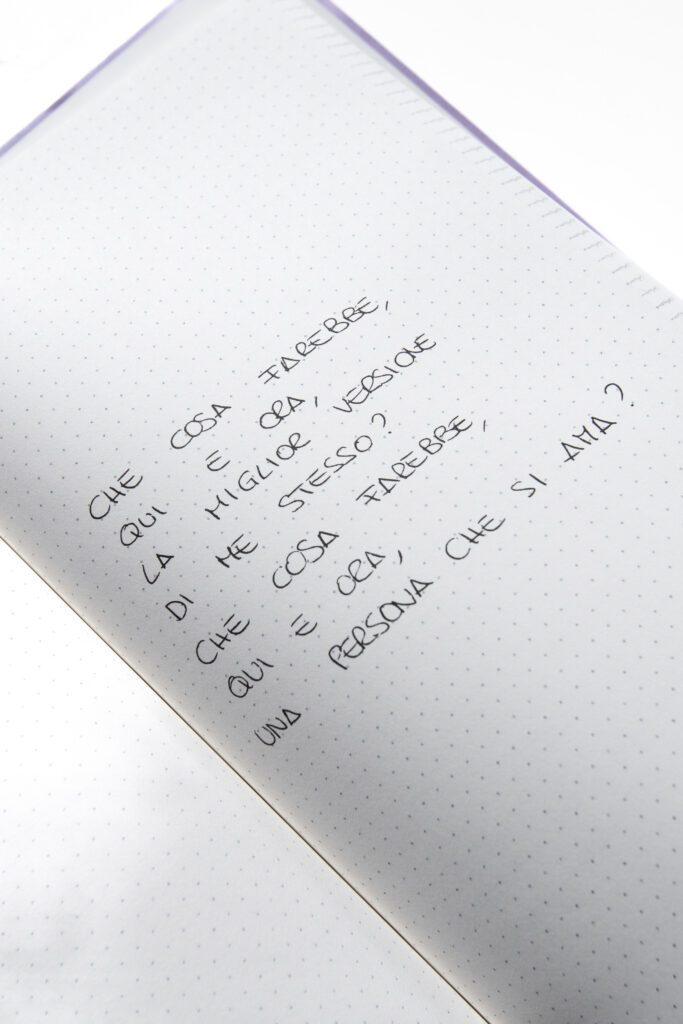 CHE COSA FAREBBE,
QUI E ORA,
LA MIGLIOR VERSIONE
DI ME STESSO?
CHE COSA FAREBBE,
QUI E ORA,
UNA PERSONA CHE SI AMA?